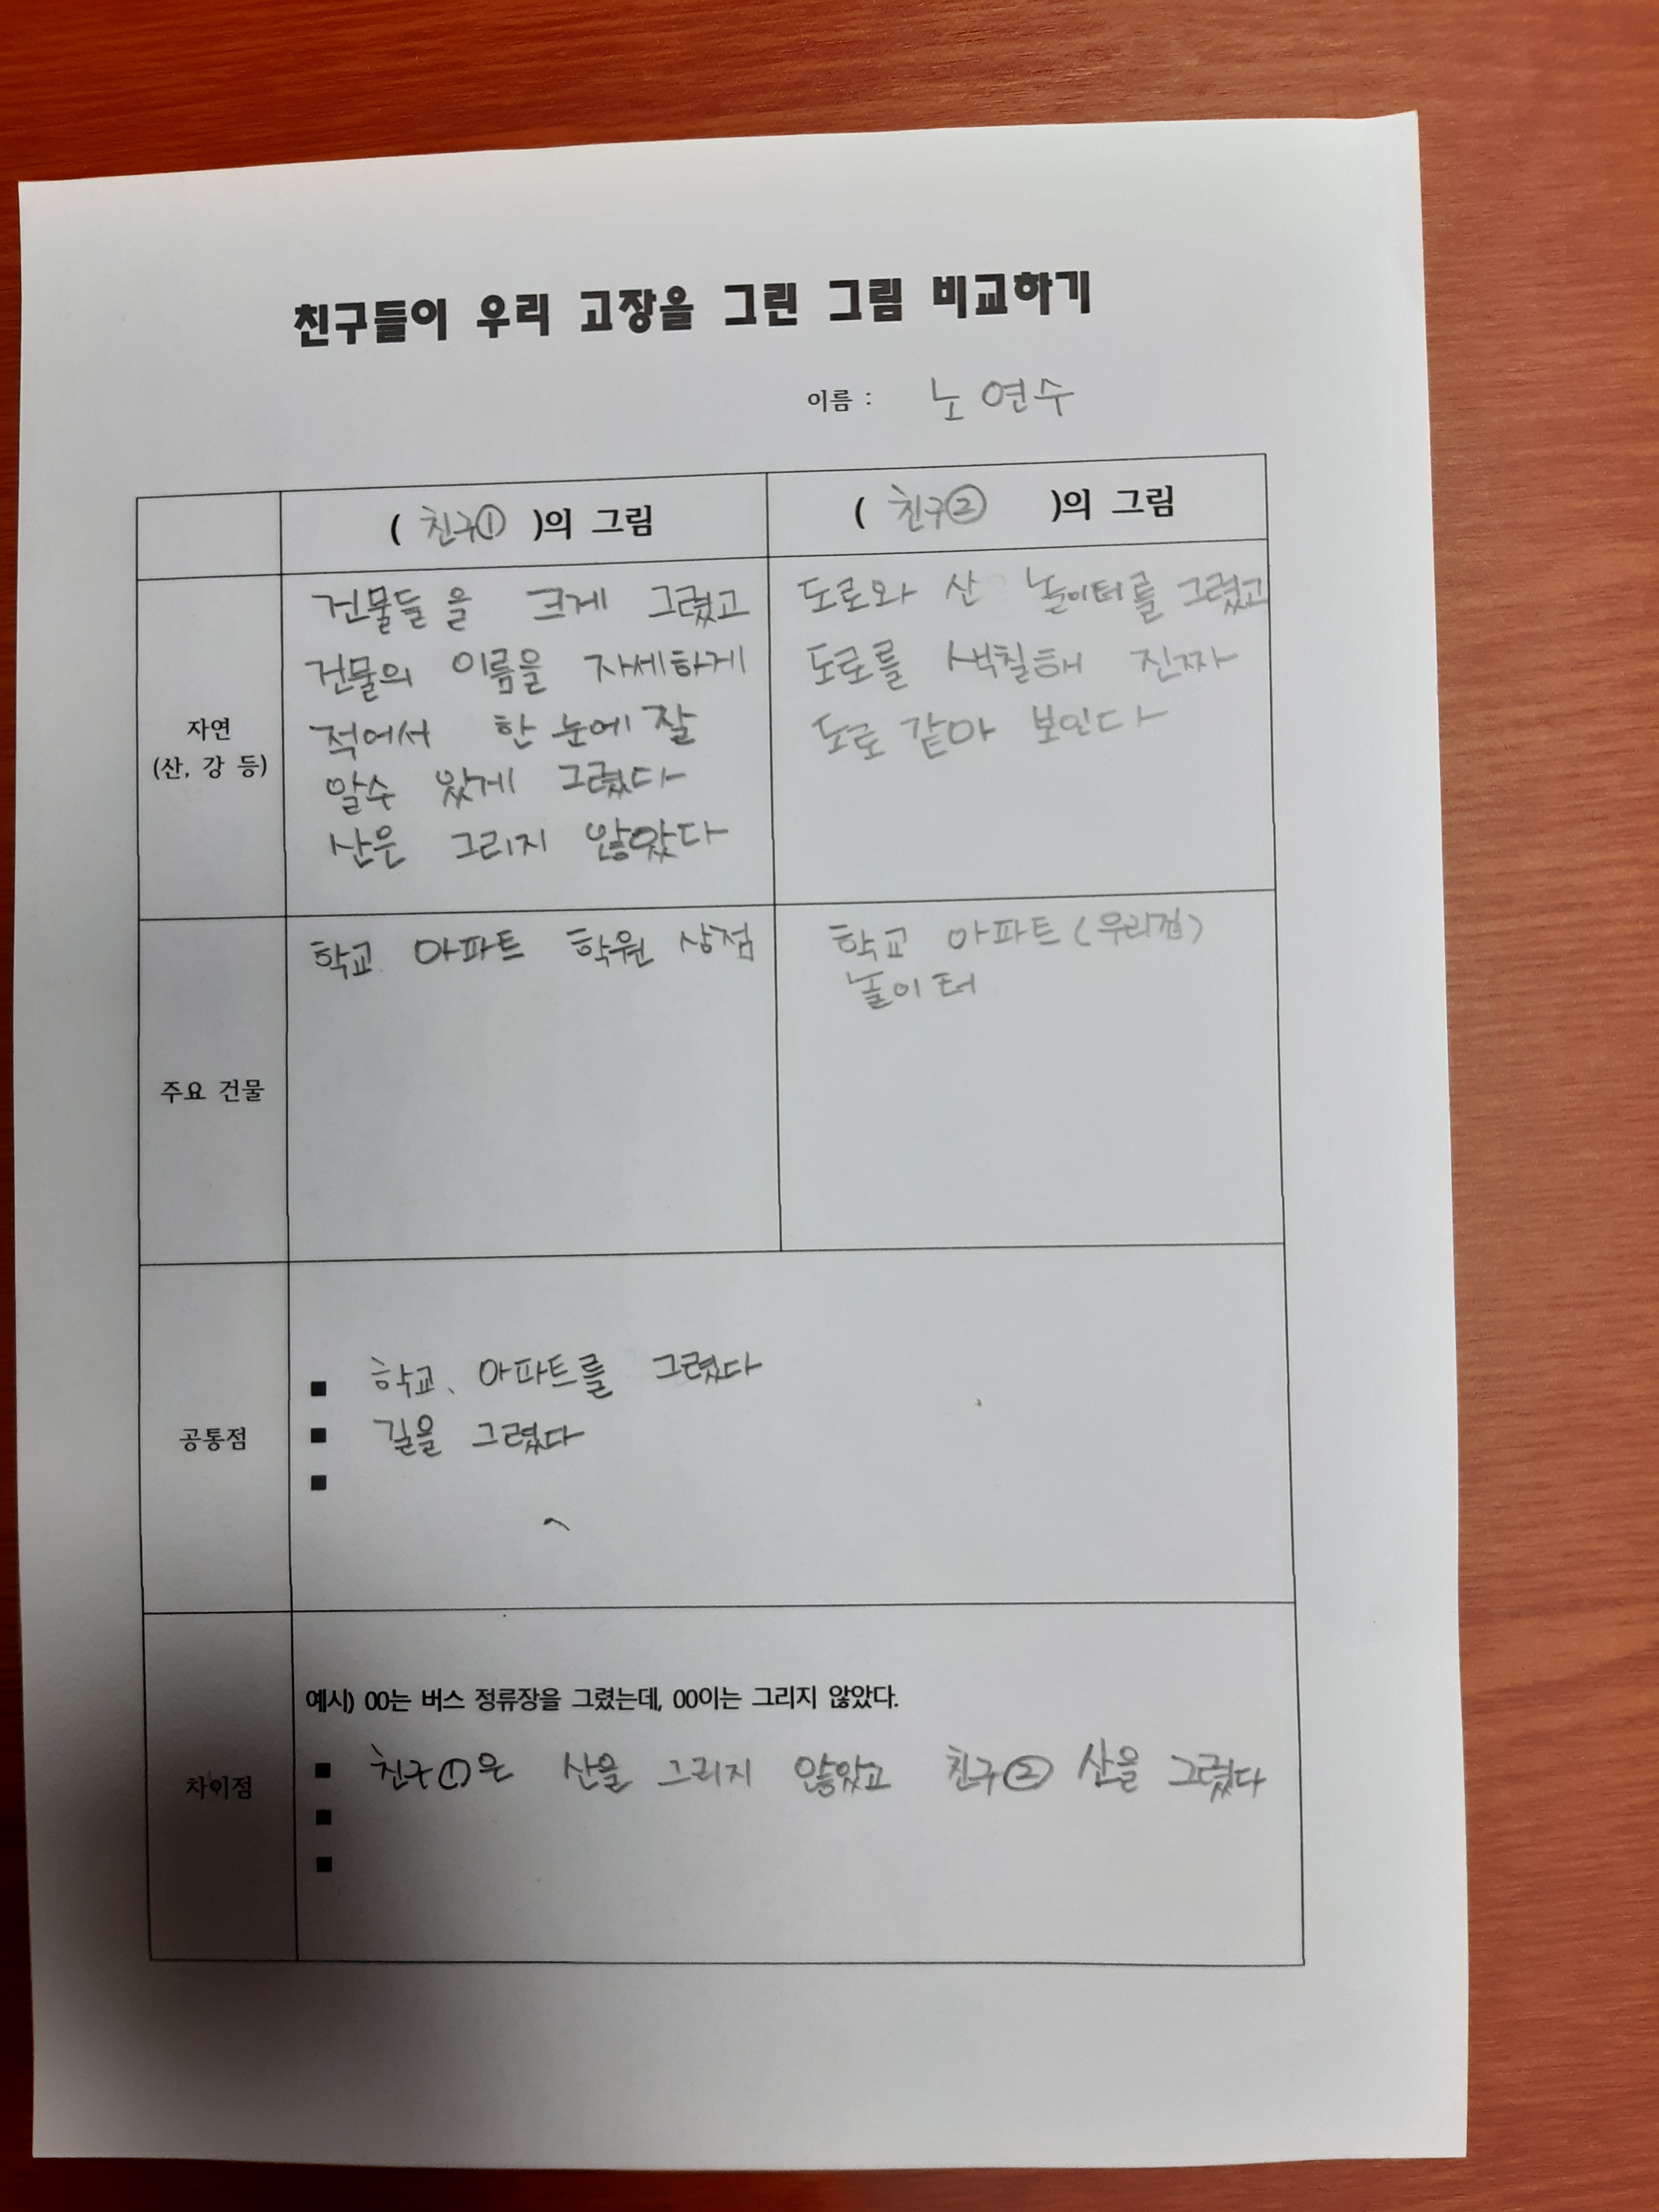 친구들이 우리 고장을 그린 그림 비교하기
이름 : 노연수
( 친구① )의 그림
( 친구② )의 그림
자연
(산, 강 등)
건물들을 크게 그렸고
건물의 이름을 자세하게
적어서 한 눈에 잘
알수 있게 그렸다
산은 그리지 않았다
도로와 산 놀이터를 그렸고
도로를 색칠해 진짜
도로 같아 보인다
주요 건물
학교 아파트 학원 상점
학교 아파트 (우리집)
놀이터
공통점
■ 학교、아파트를 그렸다
■ 길을 그렸다
■
차이점
예시) 00는 버스 정류장을 그렸는데, 00이는 그리지 않았다.
■ 친구①은 산을 그리지 않았고 친구② 산을 그렸다
■
■